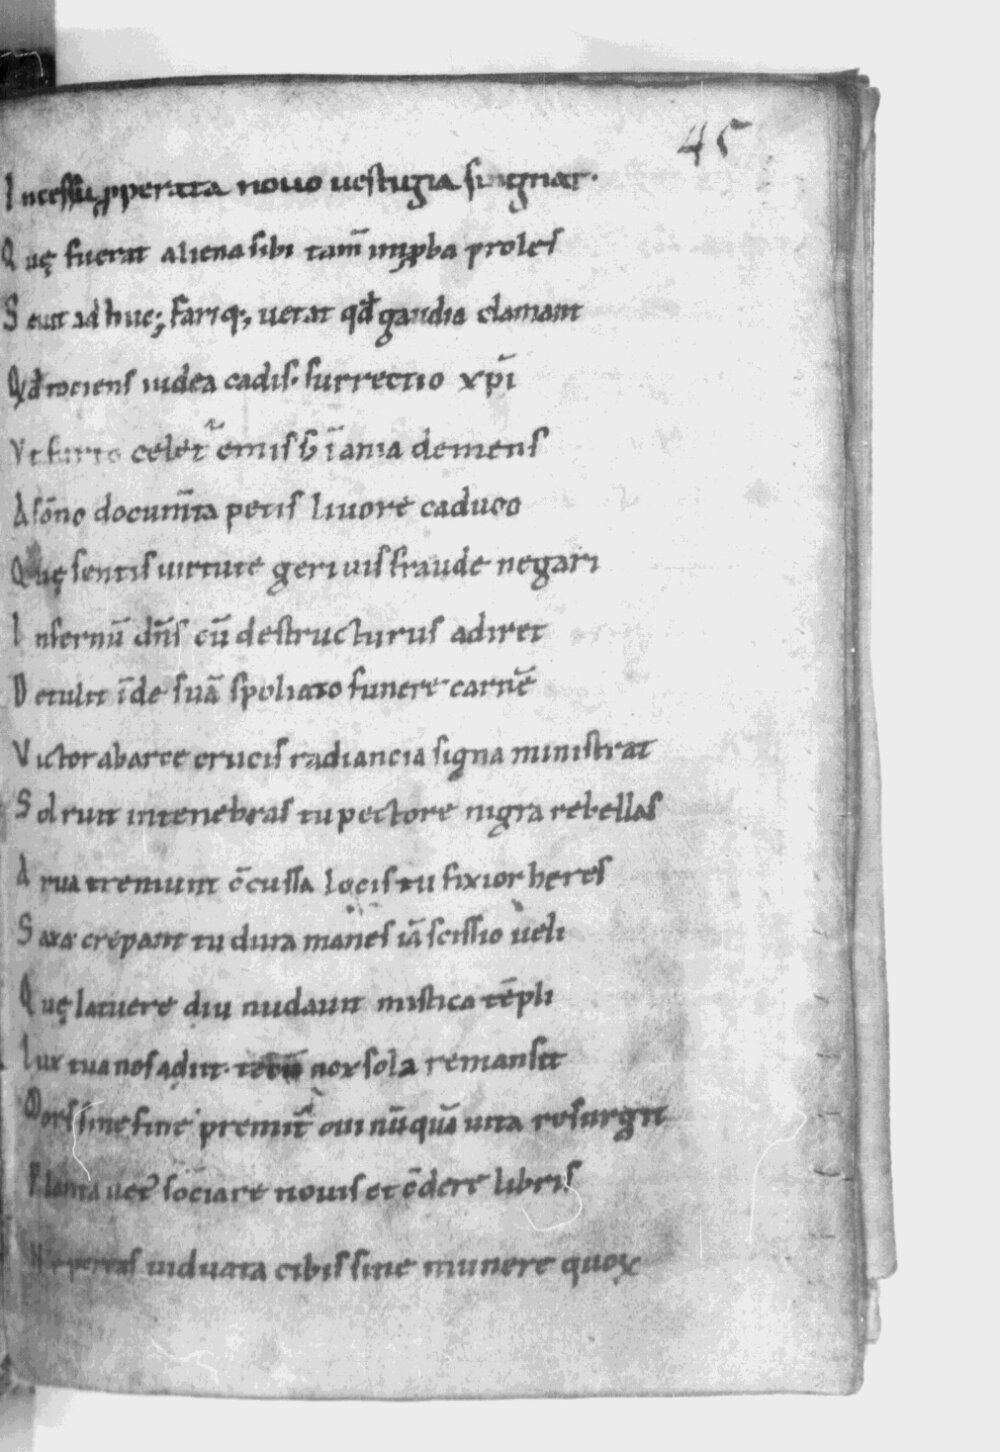 45
Incessu ꝓperata nouo uestugia singnat·
Quę fuerat aliena sibi tam̅ imꝓba proles
Seuit ad huc; Fariq; uetat qđ gaudia clamant
Qđ tociens iudea cadis· surrectio xp̅i
Vt furto celet᷑ emis ħ ī ania demens
A sōno docum̅ta petis liuore caduco
Quę sentis uirtute geri uis fraude negari
Infernū dn̅s cū destructurus adiret
Detulit īde suā spoliato funere carnē
Victor ab arce crucis radiancia signa ministrat
Sol ruit in tenebras tu pectore nigra rebellas
Arua tremunt c̅cussa locis tu fixior heres
Saxa crepant tu dura manes iā scissio ueli
Quę latuere diu nudauit mistica tēpli
Lux tua nos adiit· nox sola remansit
Mors sine fine premit oui nūquā uita resurgit
Flania uet᷑ sociare nouis et c̅dere libris
Ne pereas uiduata cibis sine munere quoꝝ